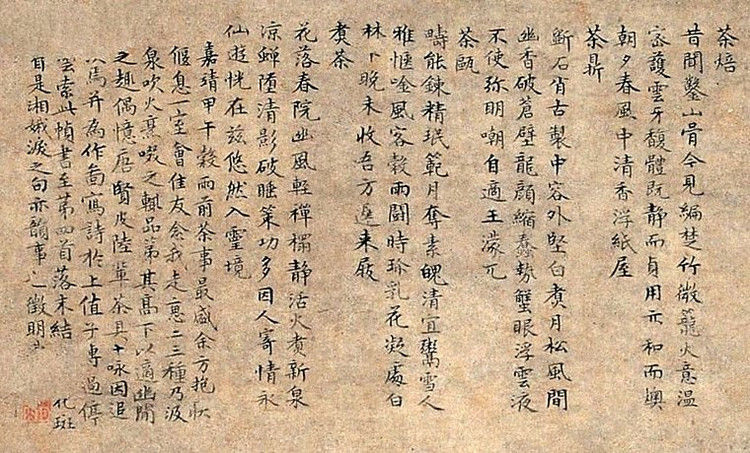 茶焙
昔聞鑿山骨今見編楚竹微籠火意温
密護雲牙馥體既静而貞用亦和而燠
朝夕春風中清香浮紙屋
茶鼎
斵石肖古製中容外堅白煮月松風間
幽香破蒼壁龍顏縮蠢勢蟹眼浮雲液
不使弥明嘲自適王濛厄
茶甌
疇能鍊精珉範月奪素魄清宜鬻雪人
雅愜唫風客穀雨闘時珎乳花凝處白
林下晚未收吾方遲来屐
煮茶
花落春院幽風軽禪榻静活火煮新泉
凉蟬墮清影破睡策功多因人寄情永
仙遊恍在兹悠然入靈境
嘉靖甲午穀雨前茶事最盛余方抱疾
偃息一室會佳友念我走惠二三種乃汲
泉吹火烹啜之輒品第其髙下以適幽閒
之趣偶憶唐賢皮陸輩茶具十咏因追
焉并為作啚寫詩於上值子專過停
雲索此幀書至第四首落末結
自是湘娥淚之句亦韻事也徵明
化斑